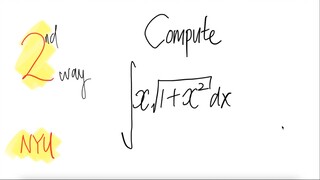 2nd way
Compute
∫x√1+x² dx
NYU